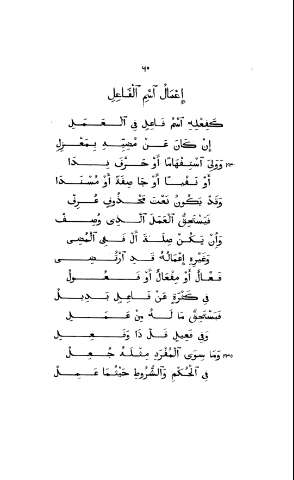 ٤٠
إِعْمَالُ ٱسْمِ ٱلْفَاعِلِ
كَفِعْلِهِ ٱسْمُ فَاعِلٍ فِي ٱلْعَمَلِ
إِنْ كَانَ عَنْ مُضِيِّهِ بِمَعْزِلِ
وَوَلِيَ ٱسْتِفْهَامًا أَوْ حَرْفَ نِدَا
أَوْ نَفْيًا أَوْ جَا صِفَةً أَوْ مُسْنَدَا
وَقَدْ يَكُونُ نَعْتَ مَحْذُوفٍ عُرِفْ
فَيَسْتَحِقُّ ٱلْعَمَلَ ٱلَّذِي وُصِفْ
وَإِنْ يَكُنْ صِلَةَ أَلْ فَفِي ٱلْمُضِي
وَغَيْرِهِ إِعْمَالُهُ قَدِ ٱرْتُضِي
فَعَّالٌ أَوْ مِفْعَالٌ أَوْ فَعُولُ
فِي كَثْرَةٍ عَنْ فَاعِلٍ بَدِيلُ
فَيَسْتَحِقُّ مَا لَهُ مِنْ عَمَلِ
وَفِي فَعِيلٍ قَلَّ ذَا وَفَعِلِ
وَمَا سِوَى ٱلْمُفْرَدِ مِثْلَهُ جُعِلْ
فِي ٱلْحُكْمِ وَٱلشُّرُوطِ حَيْثُمَا عَمِلْ